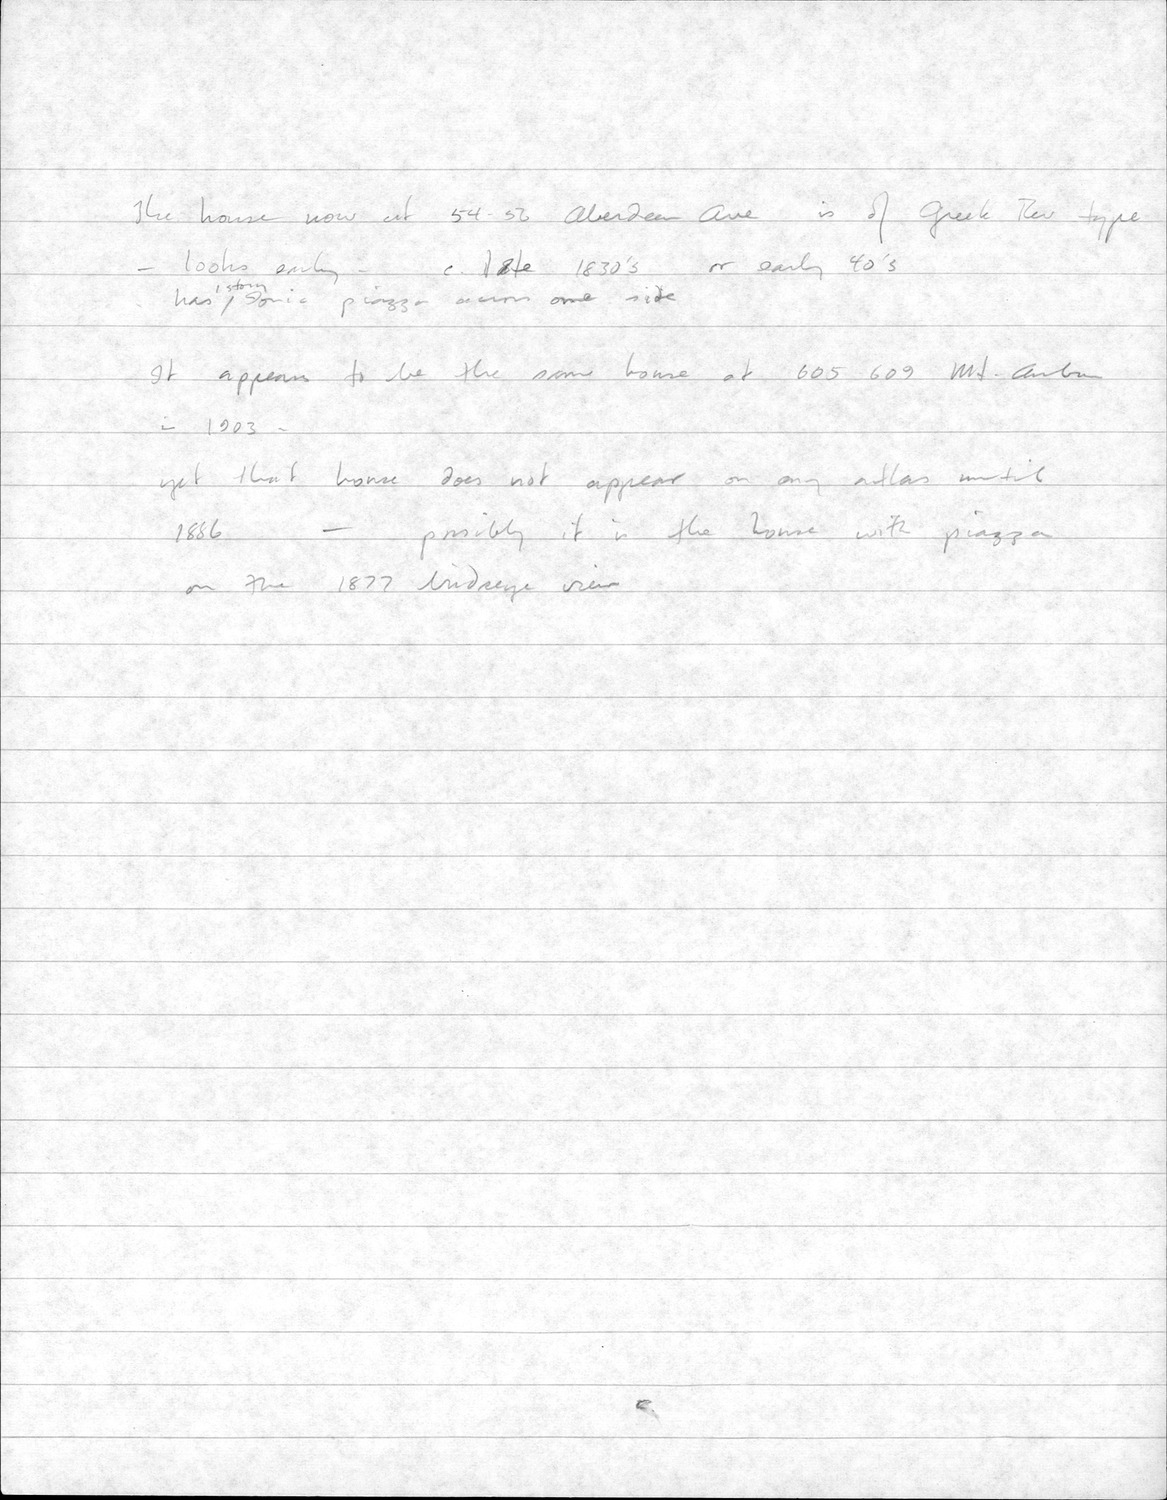 The house now at 54-56 Aberdeen Ave is of Greek Rev type
- looks early - c. late 1830's or early 40's
has 1 story Ionic piazza across one side
It appears to be the same house at 605 609 Mt. Auburn
in 1903 -
yet that house does not appear on any atlas until
1886 — possibly it is the house with piazza
on the 1877 birdseye view